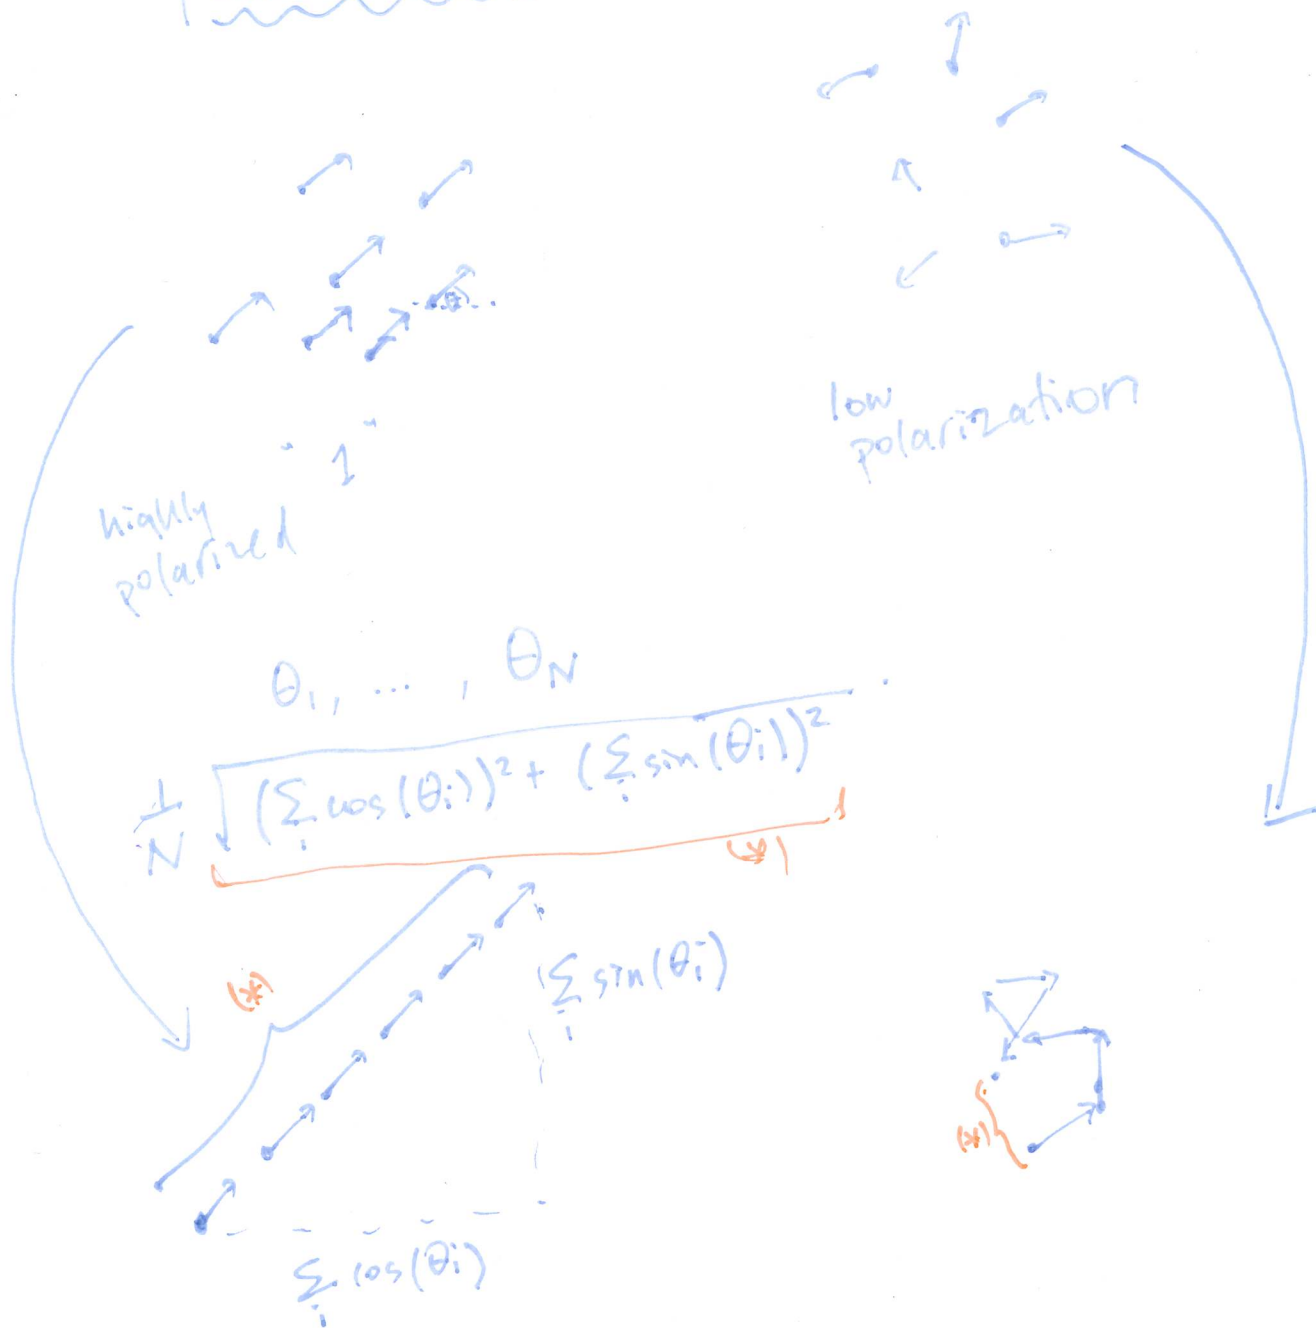 low
polarization
"1"
highly
polarized
θ₁, ... , θ_N
1/N √((Σ_i cos(θ_i))² + (Σ_i sin(θ_i))²)
(*)
(*)
Σ_i sin(θ_i)
(*)
Σ_i cos(θ_i)
θ